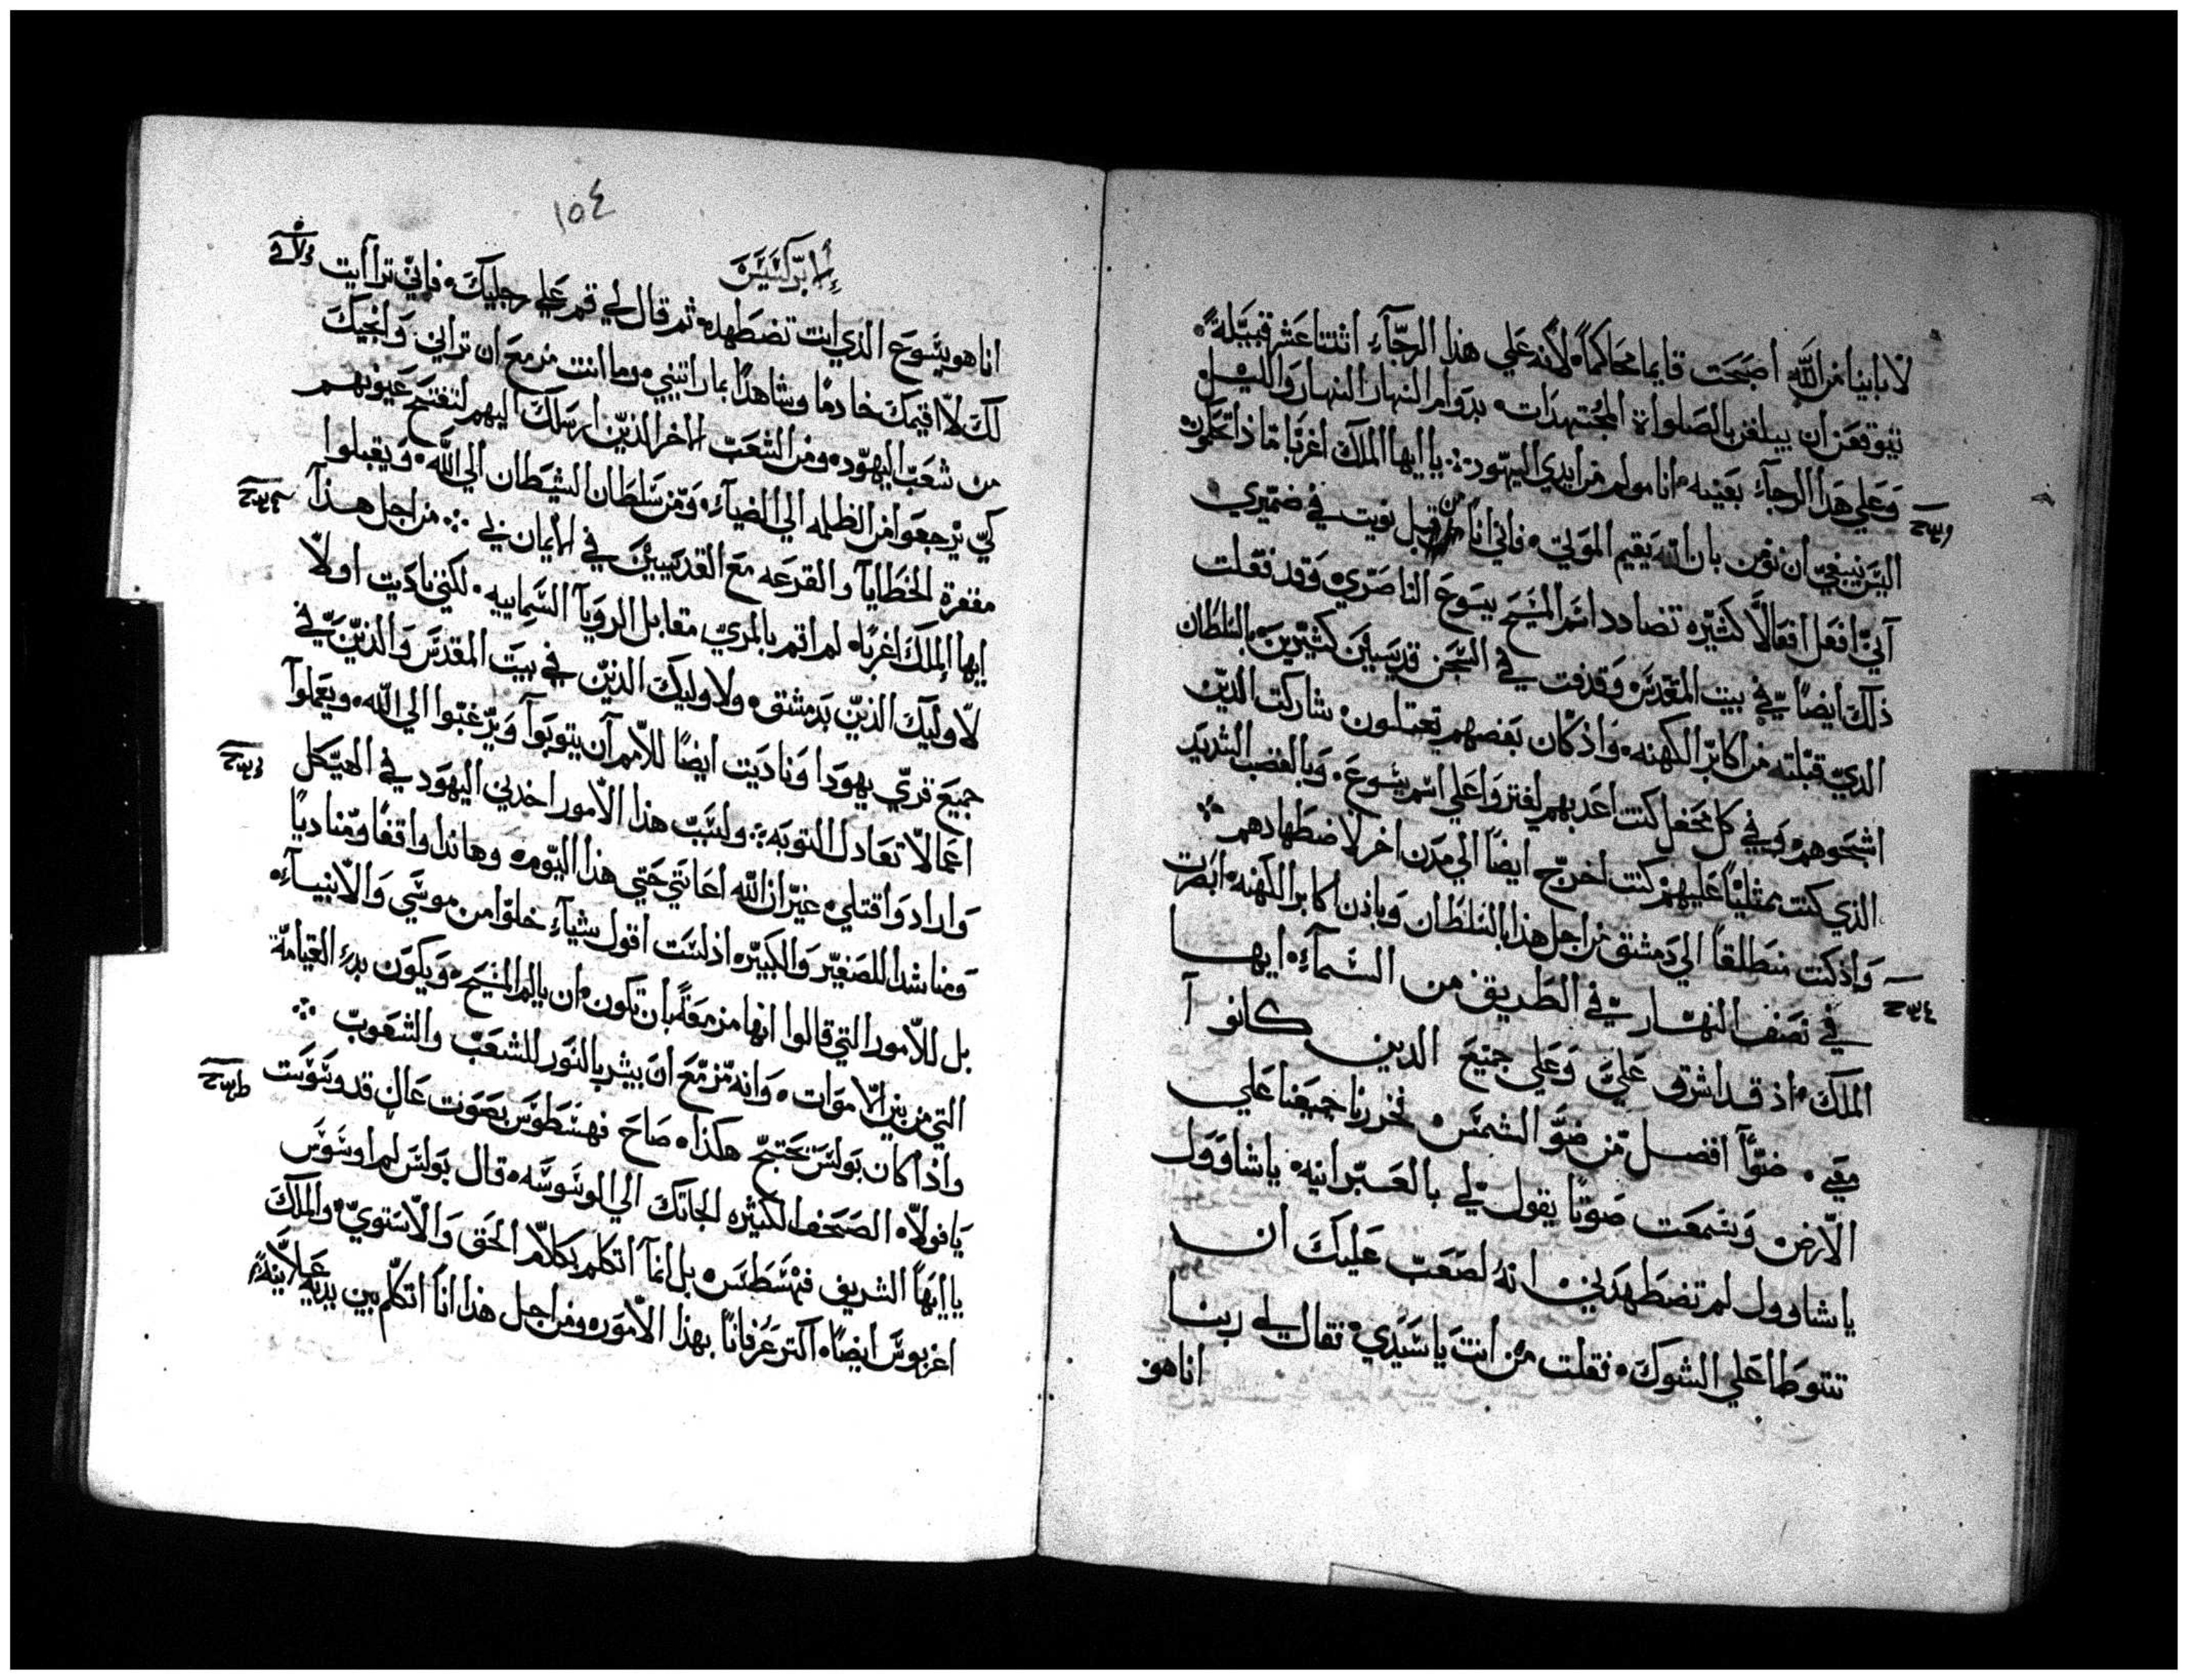 لاباينا من الله أصبحت قايما محاكماً لأنه علي هذا الرجاء اثنتا عشر قبيلة
تتوقعن ان يبلغن بالصلواة المجتهدات بدوام النهار النهار والليل
وعلي هذا الرجاء بعينه انا مولم من ايدي اليهود يا ايها الملك اغربا ماذا تحكمون
اليس ينبغي ان نومن بان الله يقيم الموتي فاني انا من قبل نويت في ضميري
آني افعل افعالاً كثيره تضادد اسم المسيح يسوع الناصري وقد فعلت
ذلك ايضاً في بيت المقدس وقدفت في السجن قديسين كثيرين بالسلطان
الذي قبلته من اكابر الكهنه واذ كان بعضهم تحتملون شاركت الدين
اشجبوهم وفي كل محفل كنت اعذبهم ليفتروا علي اسم يسوع وبالغضب الشديد
الذي كنت ممثلياً عليهم كنت اخرج ايضاً الي مدن اخر لاضطهادهم
واذ كنت منطلقاً الي دمشق من اجل هذا بالسلطان وباذن اكابر الكهنه ابصرت
في نصف النهار في الطريق من السماء ايها
الملك اذ قد اشرق علي وعلي جميع الدين كانوا
معي ضوأ افضل من ضو الشمس فخررنا جميعنا علي
الارض وسمعت صوتاً يقول لي بالعبرانيه ياشاوول
ياشاوول لم تضطهدني انه لصعب عليك ان
تتوطا علي الشوك فقلت من أنت ياسيدي فقال لي ربنا
اناهو
١٥٤
الابركسيس
اناهو يسوع الذي انت تضطهده ثم قال لي قم علي رجليك فاني تراأيت
لك لاقيمك خادما وشاهداً بما راتيني وما انت مزمع ان تراني وانجيك
من شعب اليهود ومن الشعب الاخر الذين ارسلك اليهم لتفتح عيونهم
كي يرجعوا من الظلمه الي الضياء ومن سلطان الشيطان الي الله ويقبلوا
مغفرة الخطايا والقرعه مع القديسين في الايمان بي من اجل هذا
ايها الملك اغربا لم اقم بالمري مقابل الرويا السماييه لكني ناديت اولاً
لاوليك الذين بدمشق ولاوليك الذين في بيت المقدس والذين في
جميع قري يهودا وناديت ايضاً للامم آن يتوبوآ ويرغبوا الي الله ويعملوا
اعمالا تعادل التوبه ولسبب هذا الامور اخدني اليهود في الهيكل
وارادوا قتلي غير ان الله اعانني حتي هذا اليوم وهاندا واقفاً ومناديا
ومناشدا للصغير والكبير اذ لست اقول شياء خلوا من موسي والانبياء
بل للامور التي قالوا انها مزمعة بان تكون ان يالم المسيح ويكون بدء القيامة
التي من بين الاموات وانه مزمع ان يبشر بالنور للشعب والشعوب
واذ كان بولس يحتج هكذا صاح فهسطوس بصوت عال قد وسوست
يافولاه الصحف الكثيره الجاتك الي الوسوسه قال بولس لم اوسوس
يا ايها الشريف فهسطس بل انما اتكلم بكلام الحق والاستوي والملك
اغربوس ايضاً اكتر عرفاناً بهذا الامور ومن اجل هذا انا اتكلم بين يديه علانية